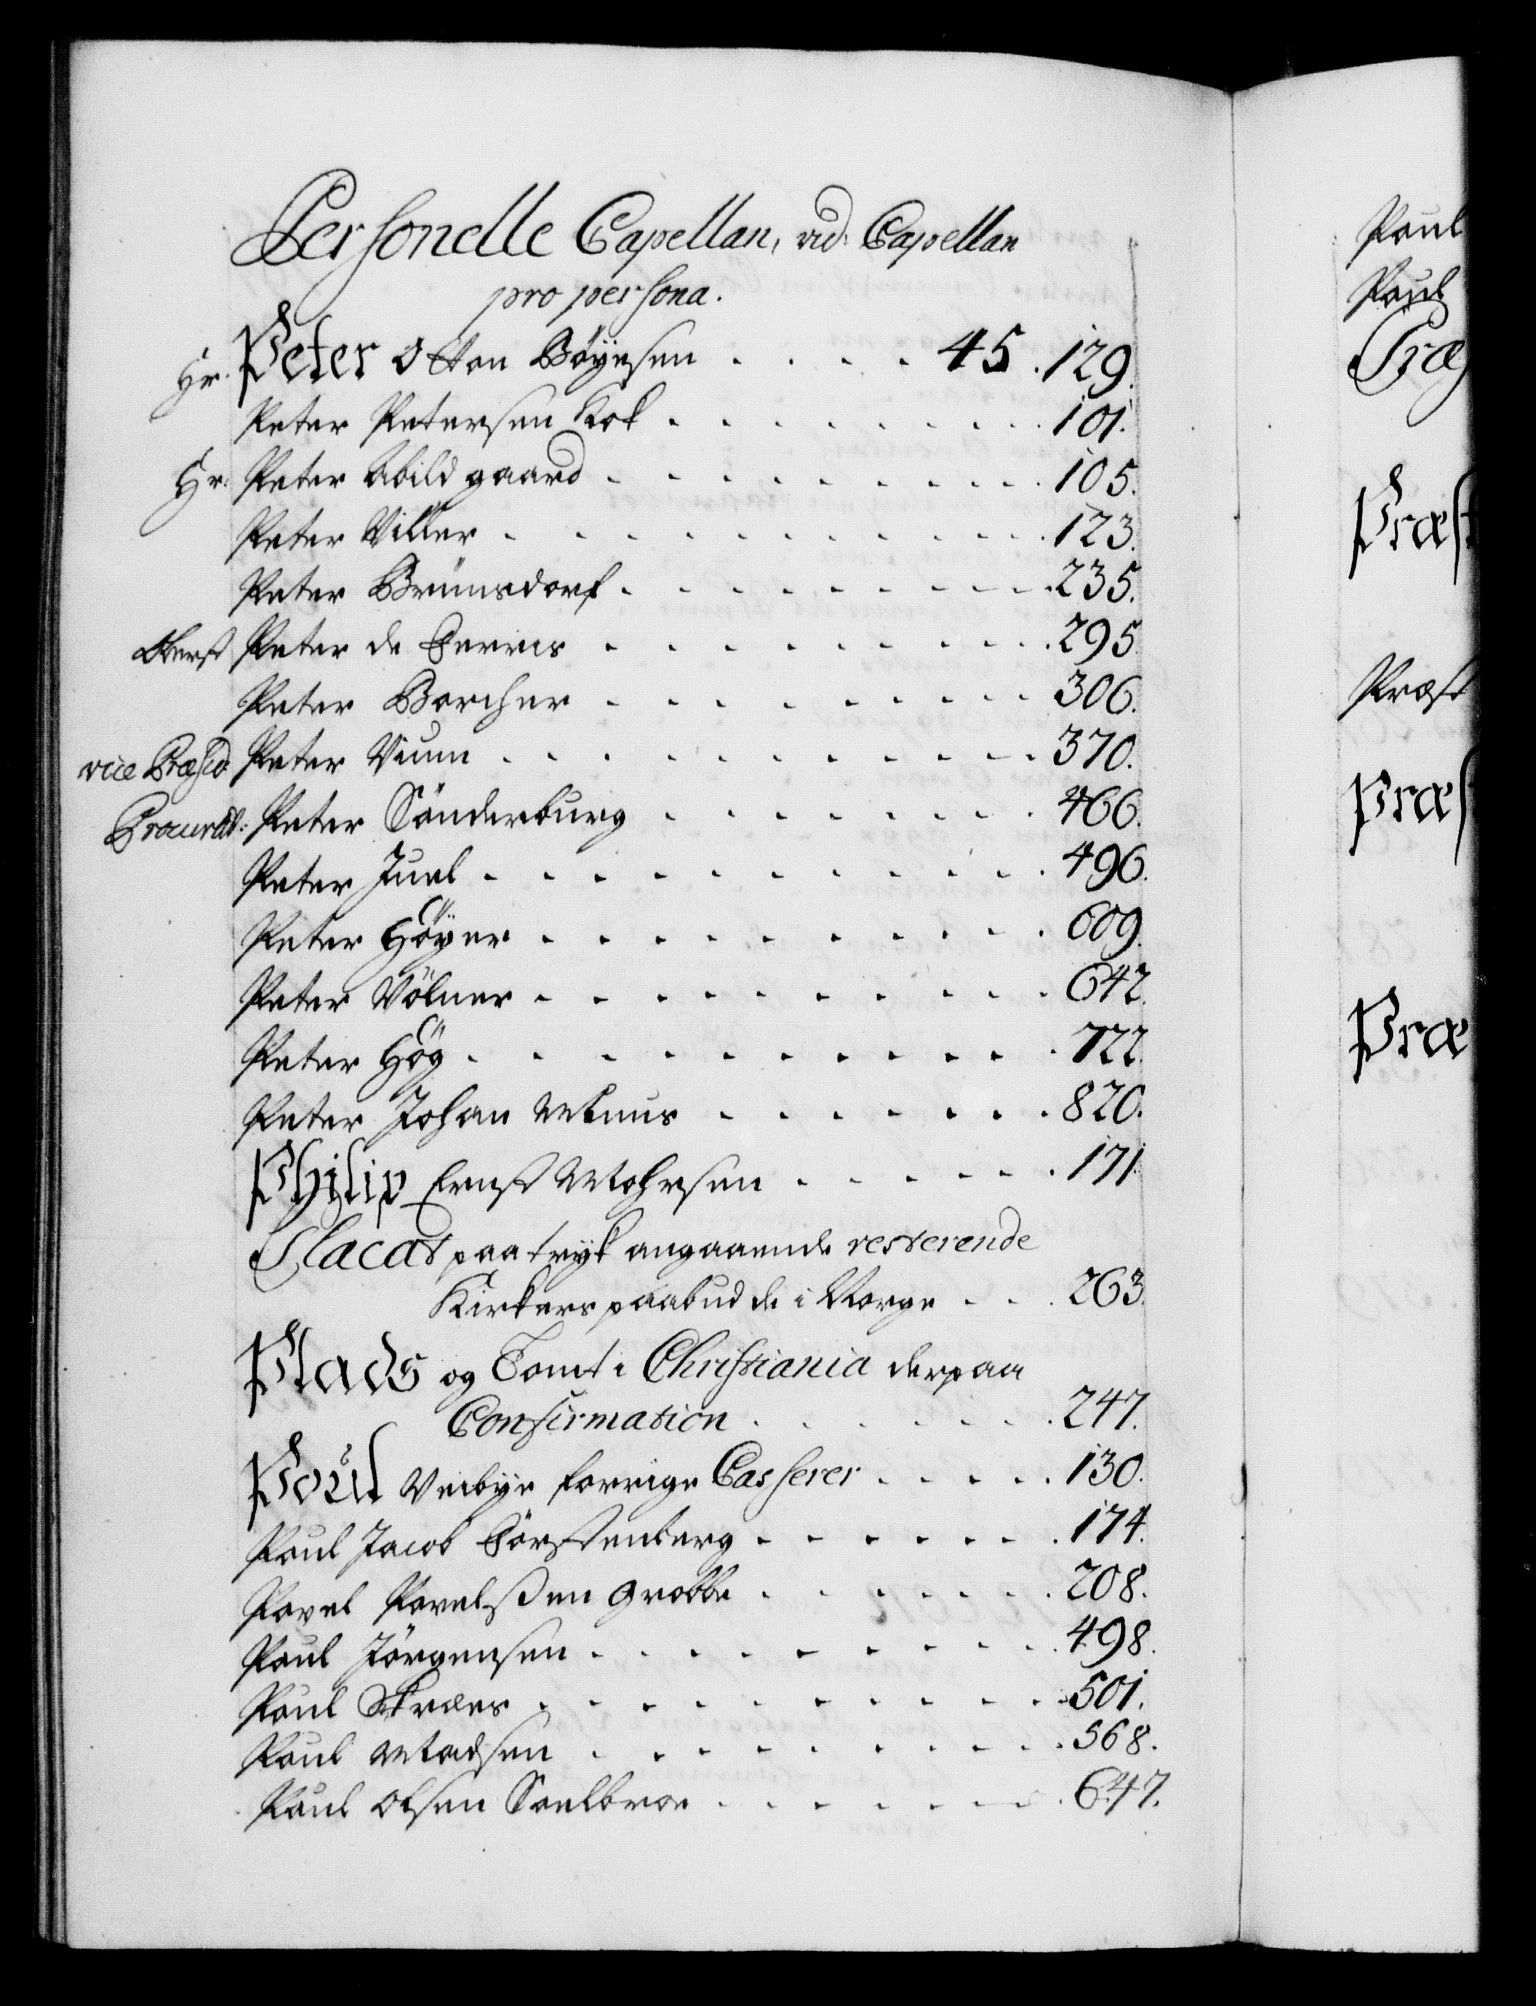 Personelle Capellan, vid. Capellan
pro persona.
Hr. Peter Otton Böyesen . . . . 45. 129.
Peter Petersen Kok . . . . . . . 101.
Hr: Peter Abildgaard . . . . . . . . 105.
Peter Viller . . . . . . . . . . 123.
Peter Brünsdorf . . . . . . . . 235.
Oberst Peter de Ferris . . . . . . . . 295.
Peter Borcher . . . . . . . . 306.
vice Præsid. Peter Vium . . . . . . . . . . 370.
Peter Sönderburg . . . . . . . 466.
Peter Juel . . . . . . . . . . . 496.
Peter Höyer . . . . . . . . . . 609.
Peter Völner . . . . . . . . . . 642.
Peter Hög . . . . . . . . . . . 722.
Peter Johan . . . . . . . 820.
Philip Ernst Mohrsen . . . . . 171.
Placat paa tryk angaaende resterende
Kirkers paabud de i Norge . . . 263.
Plads og Tomt i Christiania derpaa
Confirmation . . . . . . 247.
Poül Veibye forrige Casserer . . . . . 130.
Poul Jacob Törstenberg . . . . . . 174.
Povel Povelssen Grobbe . . . . . . 208.
Poul Jörgensen . . . . . . . . . 498.
Poul Skræes . . . . . . . . . . 501.
Poul Madsen . . . . . . . . . 568.
Poul Olsen Sonlbroe . . . . . . . 647.
Poul
Poul
Præ
Præst
Præst
Præs
Præ